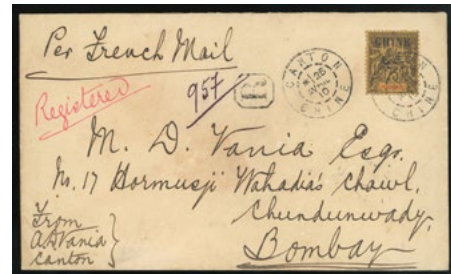 Per French Mail
Registered
957
R
CANTON
CHINE
CHINE
75
CHINE
M. D. Vania Esqr.
No. 17 Hormusji Wahadia's Chawl,
Chundunwady,
Bombay
From
A. D. Vania
Canton